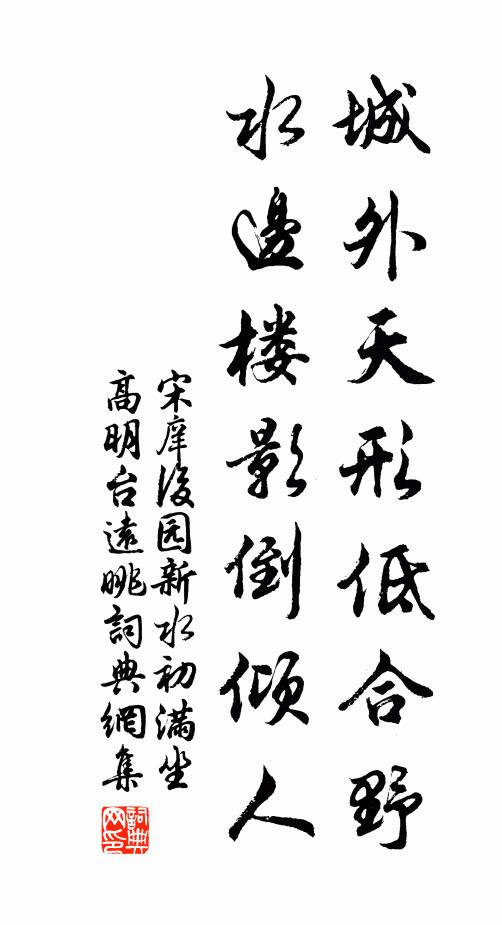 城外天形低合野
水邊楼影倒倾人
宋庠後园新水初满坐
高明台遠眺詞典網集
詞典网印